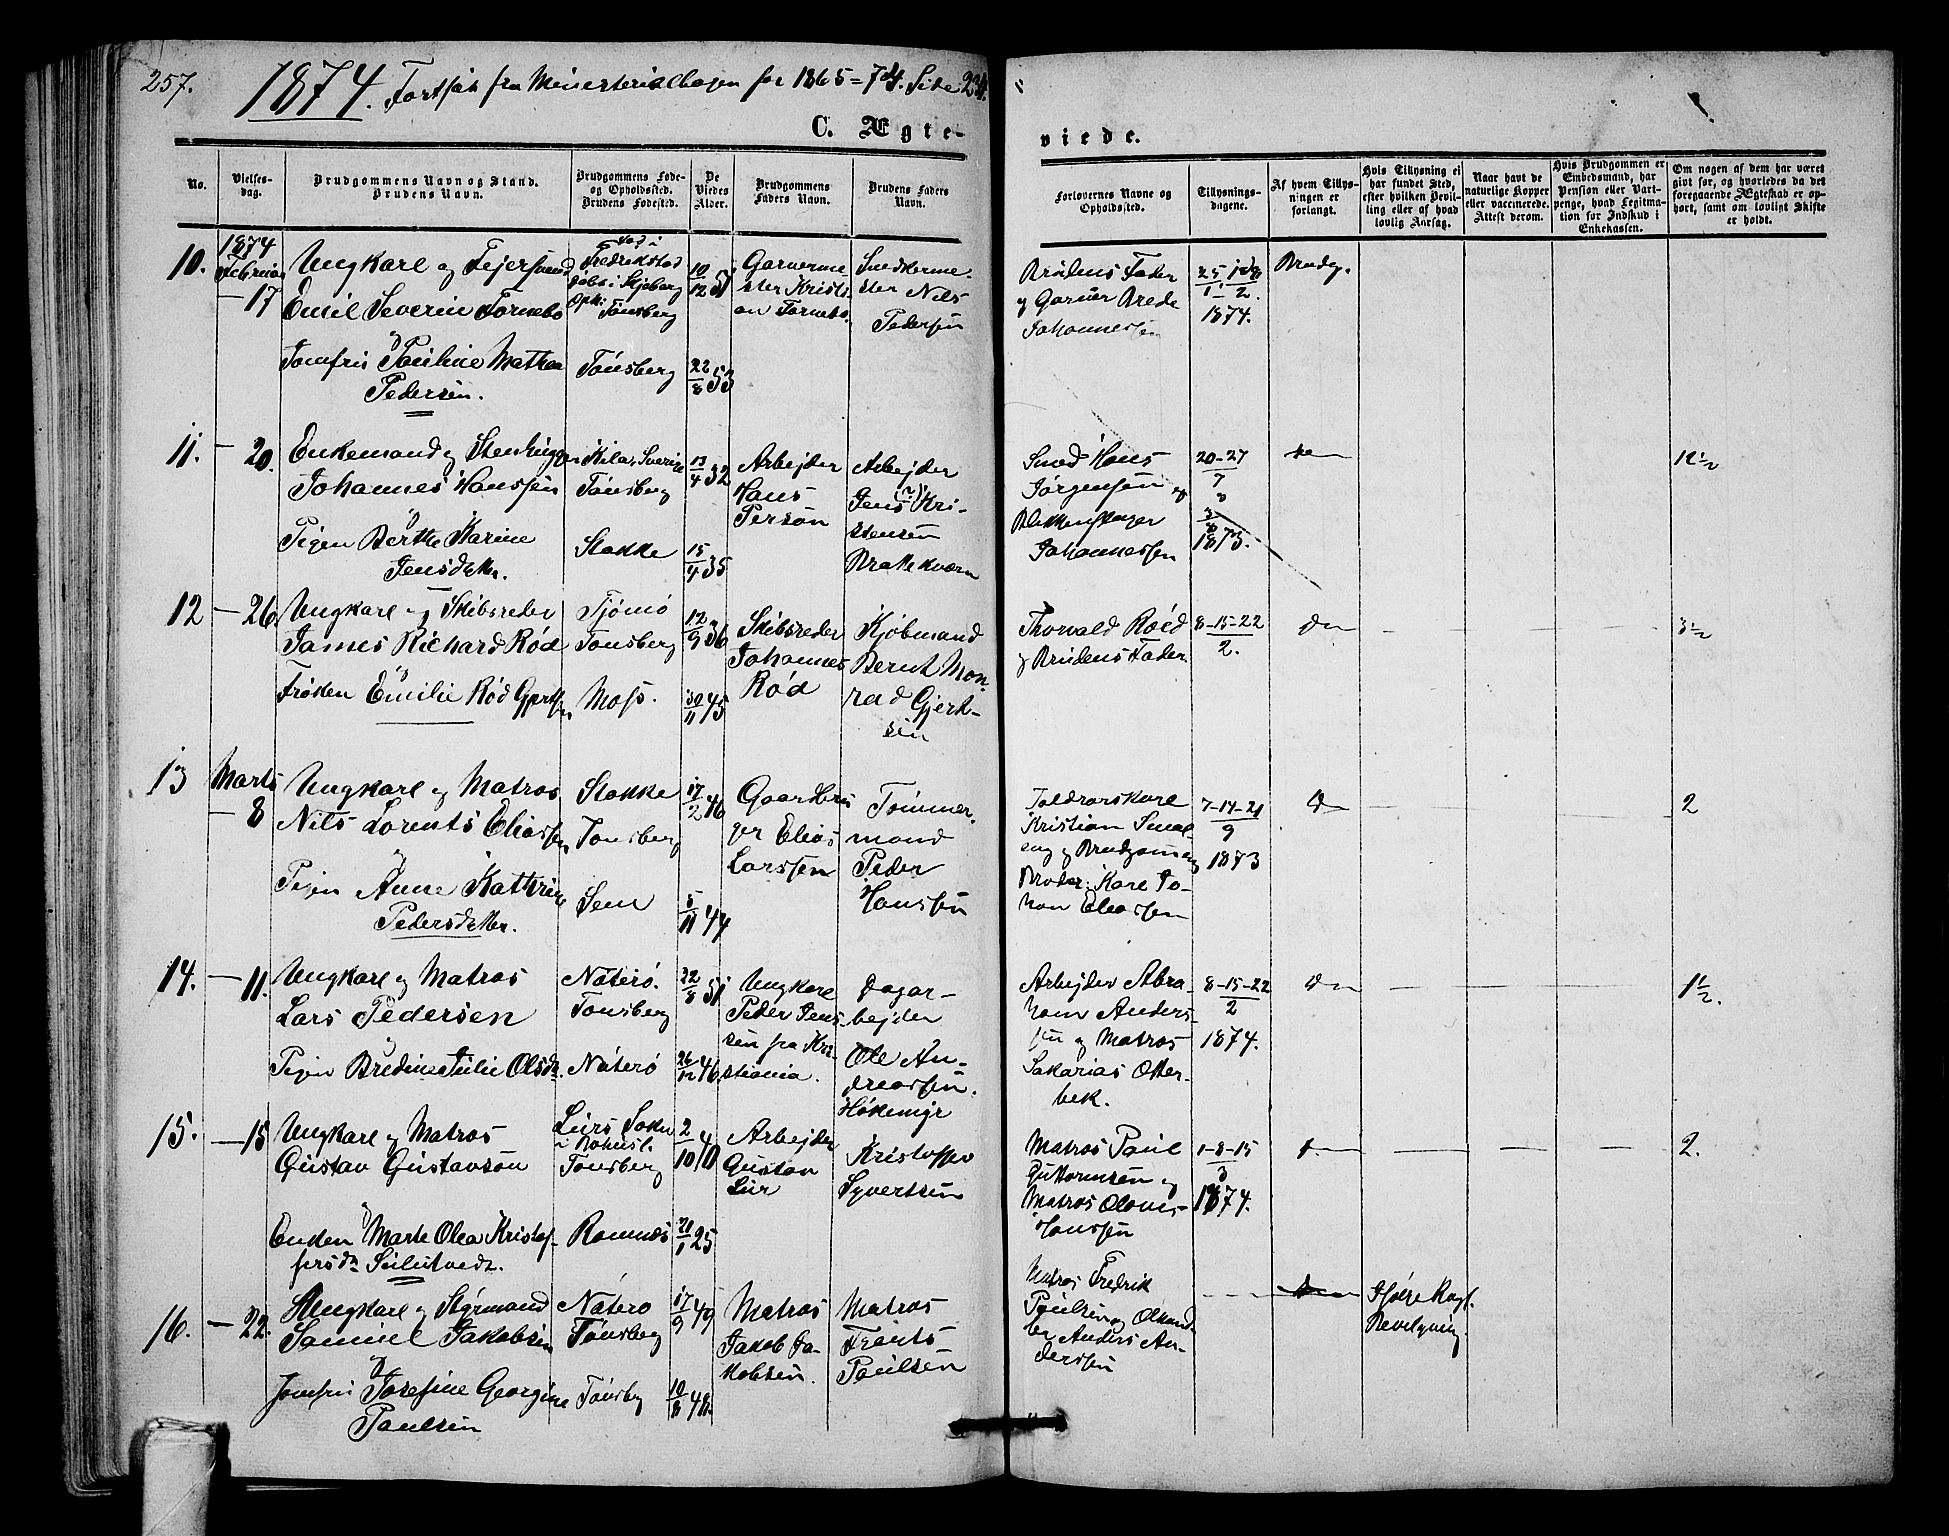 257. 1874. Fortsat fra Ministerialbogen for 1865-74. Side
C. Ægte-
viede.
No.
Vielses-
dag.
Brudgommens Navn og Stand.
Brudens Navn.
Brudgommens Føde-
og Opholdssted.
Brudens Fødested.
De
Viedes
Alder.
Brudgommens
Faders Navn.
Brudens Faders
Navn.
Forlovernes Navne og
Opholdssted.
Tillysnings-
dagene.
Af hvem Tillys-
ningen er
forlangt.
Hvis Tillysning ei
har fundet Sted,
efter hvilken Bevil-
ling eller af hvad
lovlig Aarsag.
Naar havt de
naturlige Kopper
eller vaccinerede.
Attest derom.
Hvis Brudgommen er
Embedsmand, har
Pension eller Vart-
penge, hvad Legitma-
tion for Indskud i
Enkekassen.
Om nogen af dem har været
givt før, og hvorledes da det
foregaaende Ægteskab er op-
hørt, samt om lovligt Skifte
er holdt.
10.
1874
Februar
- 17
Ungkarl og Fejersvend
Emil Severin Tornebo
og
Jomfru Pauline Mathea
Pedersen.
Fød i
Fredrikstad
døbt i Skjeberg
Oph: Tønsberg
Tønsberg
10/12 51
22/8 53
Garverme-
ster Kristi-
an Tornebo.
Snedkerme-
ster Nils
Pedersen
Brudens Fader
og Garver Brede
Johannessen
25
1874.
Brudg.
11.
- 20.
Enkemand og Stenhugger
Johannes Hanssen
og
Pigen Berthe Karine
Jensdatter.
Kila, Sverige
Tønsberg
Stokke
13/4 32
15/4 35
Arbejder
Hans
Person
Arbejder
Jens (?) Kri-
stensen
Brattekværn
Smed Hans
Jørgensen og
Blikkenslager
Johannessen
20-27
7
1873.
1 1/2
12
- 26.
Ungkarl og Skibsreder
James Richard Rød
og
Frøken Emilie Rød Gjertsen
Tjømø
Tønsberg
Moss.
12/9 36
30/11 45
Skibsreder
Johannes
Rød
Kjøbmand
Bernt Mon-
rad Gjert-
sen
Thorvald Røed
og Brudens Fader.
8-15-22
2.
3 1/2
13
Marts
- 8
Ungkarl og Matros
Nils Lorents Eliassen
og
Pigen Anne Kathrine
Pedersdatter.
Stokke
Tønsberg
Sem
17/2 46
5/11 44
Gaardbru
ger Elias
Larssen
Tømmer-
mand
Peder
Hanssen
Toldrorskarl
Kristian Smel-
eng og Brudgommens
Broder: Karl Jo-
han Eliassen
7-14-21
9
1873
2
14.
- 11.
Ungkarl og Matros
Lars Pedersen
og
Pigen Bredine Julie Olsdr.
Nøterø.
Tønsberg
Nøterø
22/8 51
26/12 46
Ungkarl
Peder Jens-
sen fra Kri-
stiania.
Dagar-
bejder
Ole An-
dreassen.
Høkemyr
Arbejder Abra-
ham Anders-
sen og Matros
Sakarias Otter-
bek.
8-15-22
2
1874.
1 1/2.
15.
- 15
Ungkarl og Matros
Gustav Gustavson
og
Enken Marte Olea Kristof-
fersdr
Lurs Sokn
i Bohusl.
Tønsberg
Ramnes
2/10 40
21/1 25
Arbejder
Gustav
Lur
Kristoffer
Syvertsen
Matros Paul
Guttormsen og
Matros Olaves
Hanssen
1-8-15
3
1874.
2.
16.
- 22.
Ungkarl og Styrmand
Samuel Jakobsen
og
Jomfru Josefine Georgine
Paulsen
Nøterø
Tønsberg
Tønsbg
17/9 49
10/8 48.
Matros
Jakob Ja-
kobsen.
Matros
Frants
Paulsen
Matros Fredrik
Paulsen og
Anders An-
derssen
Ifølge Kogl.
Bevilgning.